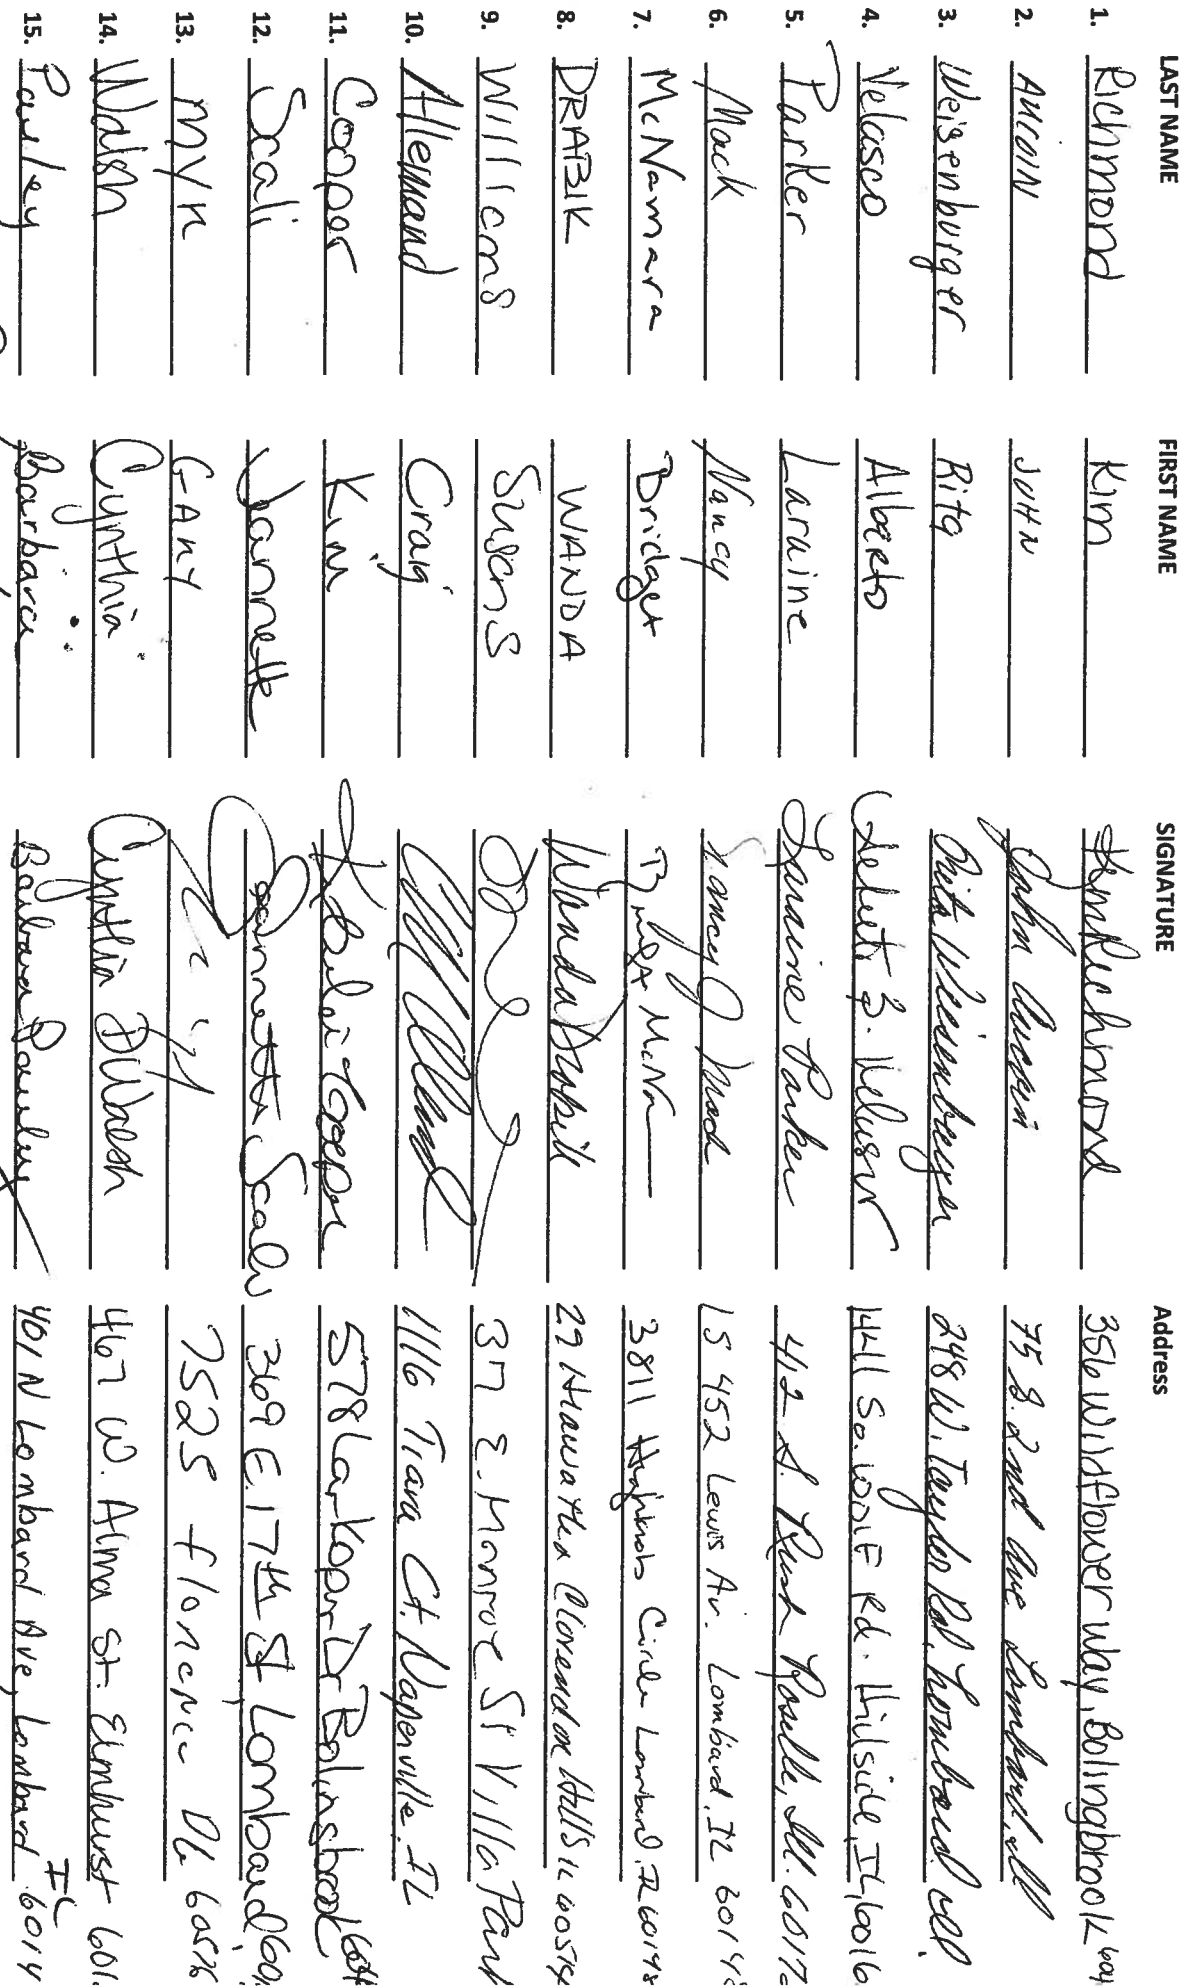 LAST NAME FIRST NAME SIGNATURE Address
1. Richmond Kim Kim Richmond 356 Wildflower Way, Bolingbrook
2. AUCOIN JOHN John Aucoin 75 S. 2nd Ave Lombard, Ill
3. Weisenburger Rita Rita Weisenburger 248 W. Taylor Rd. Lombard Ill
4. Velasco Alberto 1441 So. Wolf Rd. Hillside, IL 6016
5. Parker Laraine Laraine Parker 412 S. Rush Roselle, Ill. 6017
6. Mack Nancy Nancy J Mack 1S 452 Lewis Av. Lombard, IL 60148
7. McNamara Bridget Bridget McNa 3811 Highknob Circle Lombard, IL 60148
8. DRABIK WANDA Wanda Drabik 29 Hiawatha Clarendon Hills IL 60514
9. Williams Susan S 37 E. Monroe St Villa Park
10. Allemand Craig 1116 Tiara Ct. Naperville, IL
11. Cooper Kim 578 Larkspur Dr Bolingbrook 604
12. Scali Jannette Jannette Scali 369 E. 17th St, Lombard, 60
13. Myn GARY 7525 Florence 60516
14. Walsh Cynthia Cynthia D Walsh 467 W. Alma St. Elmhurst 601
15. Pauley Barbara Barbara Pauley 401 N Lombard Ave, Lombard IL 6014